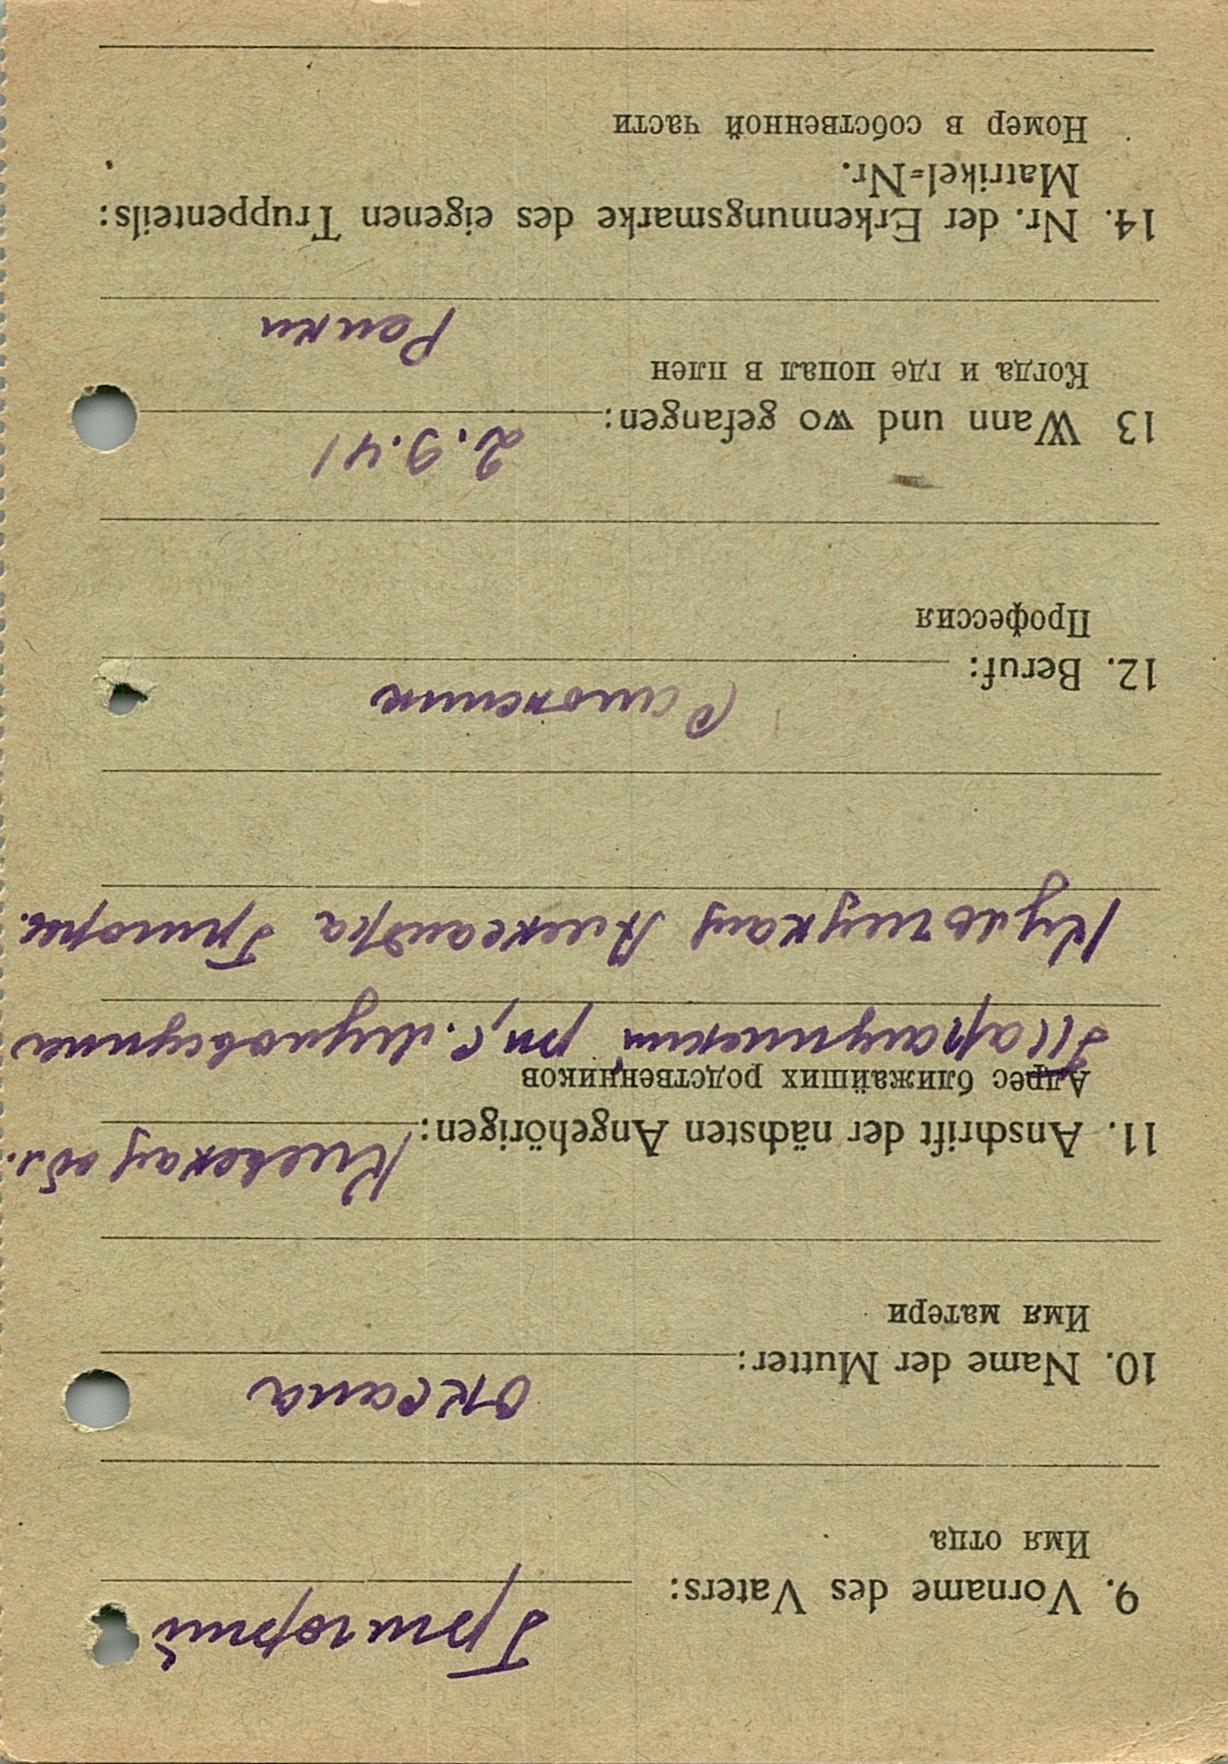 9. Vorname des Vaters: Григорий
Имя отца
10. Name der Mutter: Оксана
Имя матери
11. Anschrift der nächsten Angehörigen: Киевская обл.
Адрес ближайших родственников
Таращинский рн, с. Луковица
Александра Григорь.
12. Beruf: Сапожник
Профессия
13 Wann und wo gefangen: 2.9.41
Когда и где попал в плен
14. Nr. der Erkennungsmarke des eigenen Truppenteils:
Matrikel=Nr.
Номер в собственной части